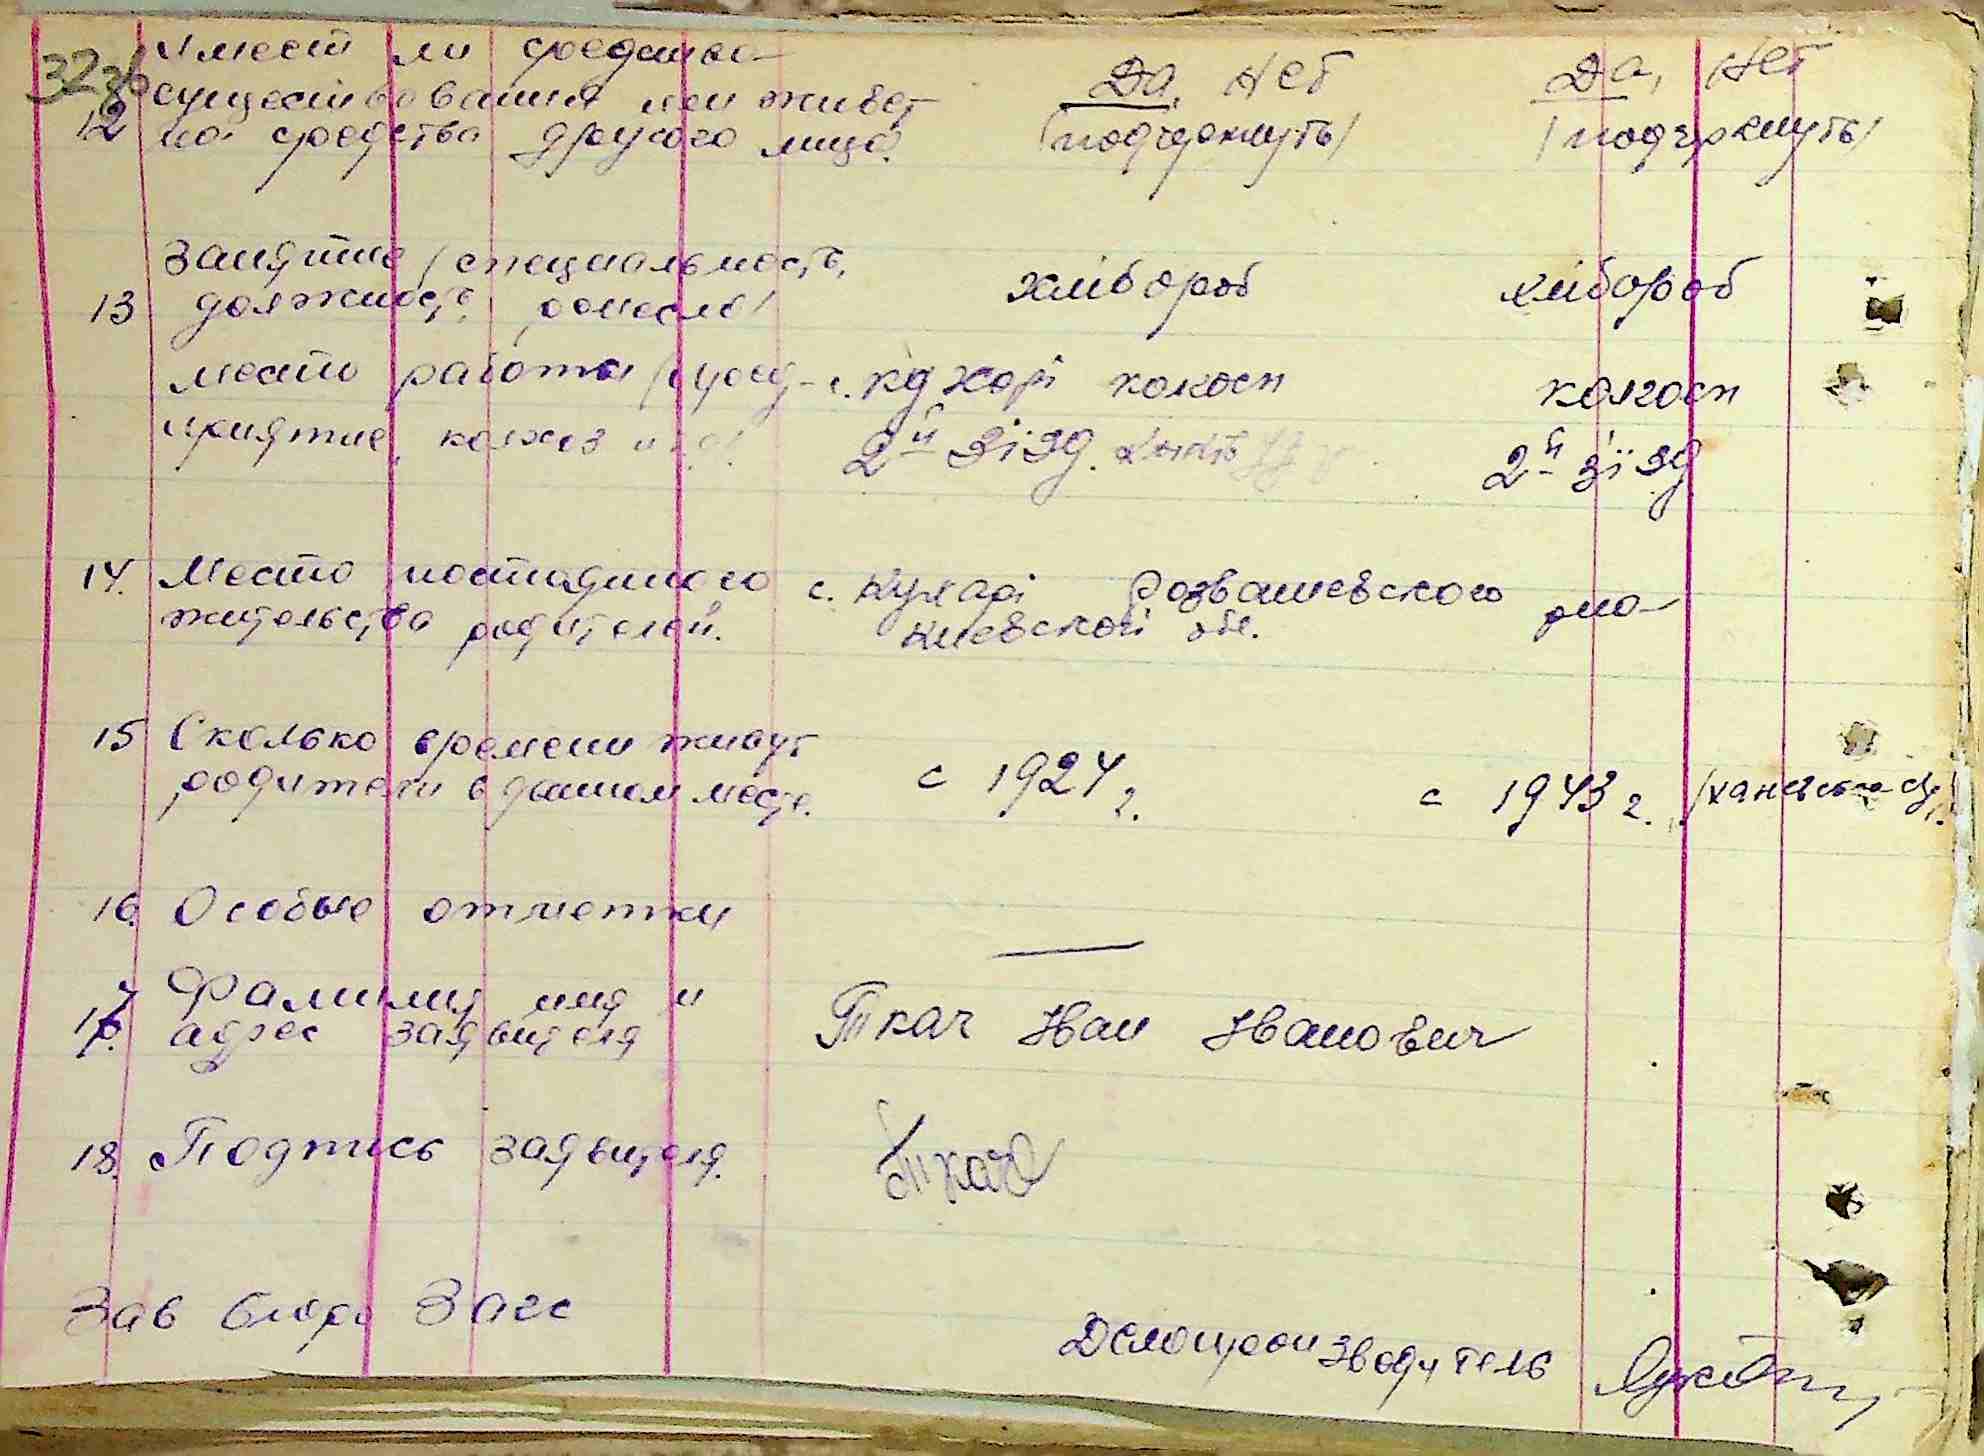 32зв
Имеет ли средства
существования или живет Да, Нет Да, Нет
12 на средства другого лица. (подчеркнуть) (подчеркнуть)
Занятие (специальность,
13 должность, ремесло) хлібороб хлібороб
место работы (пред- колгосп колгосп
приятие, колхоз 2й зїзд. 2й зїзд
14. Место постоянного с. Кухарі Розважевского рно-
жительства родителей. Киевской обл.
15 Сколько времени живут
родители в данном месте. с 1924 г. с 1943 г.
16. Особые отметки —
17. Фамилия имя и
адрес заявителя Ткач Иван Иванович
18. Подпись заявителя. Ткач
Зав бюро Загс
Делопроизводитель